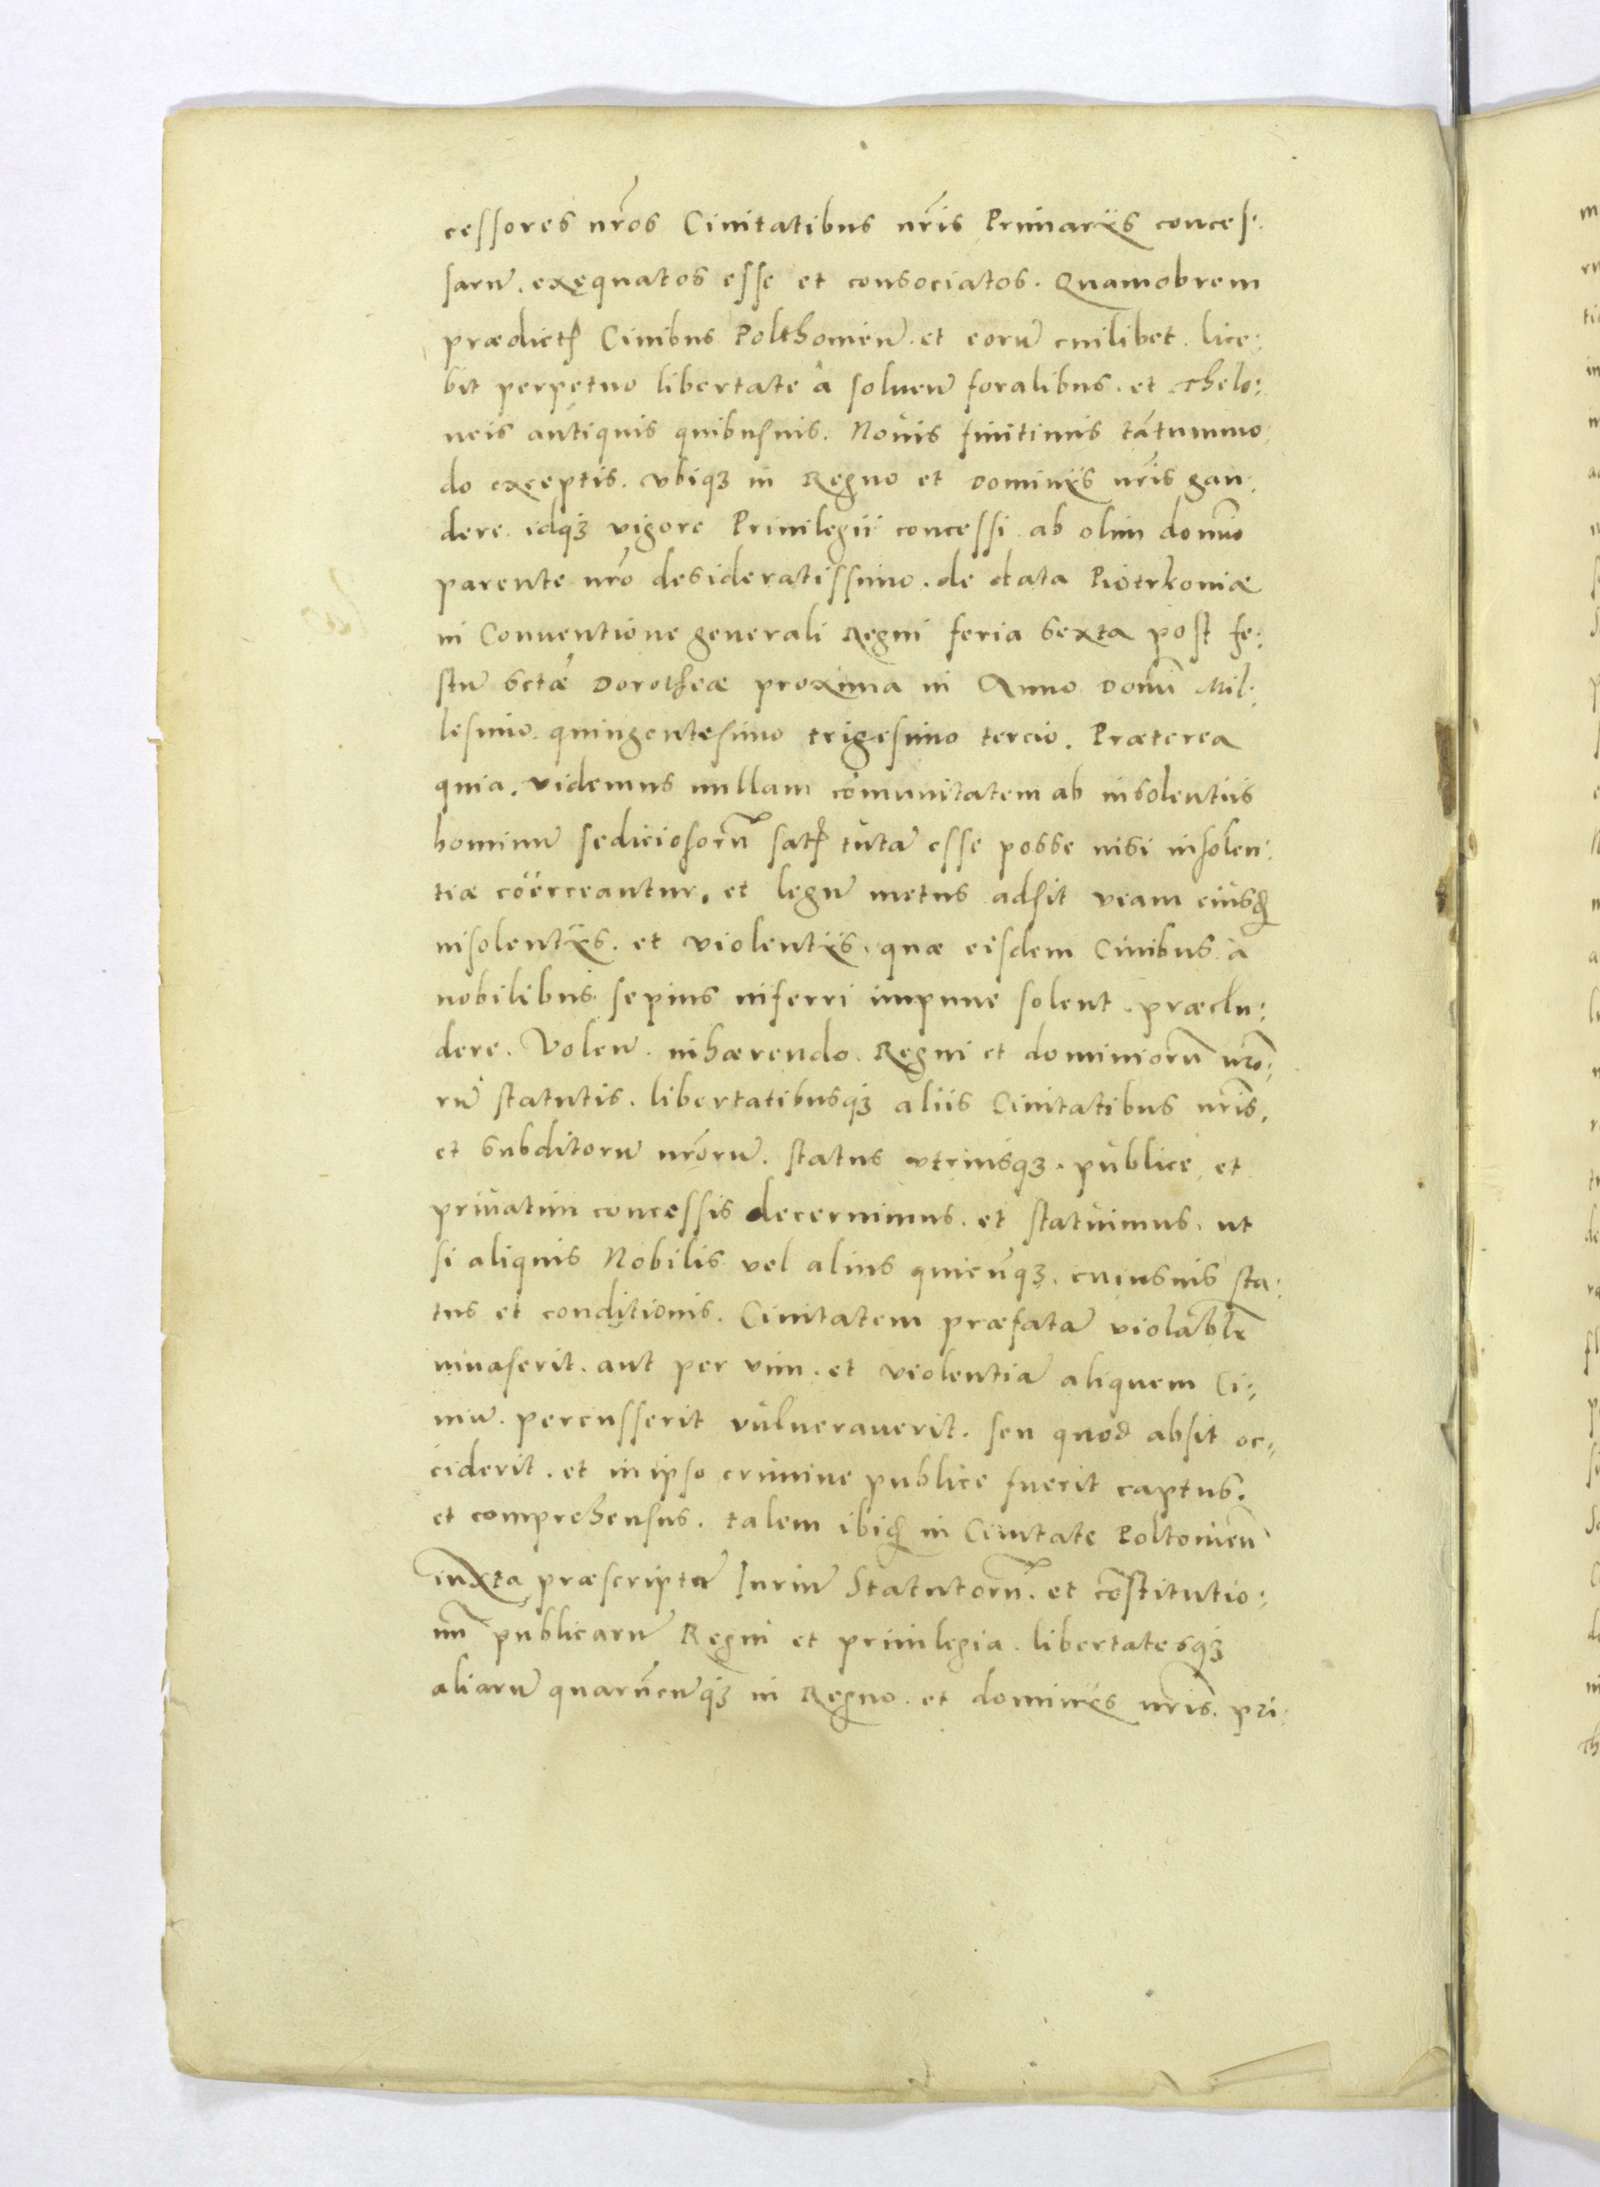 cessores nr̃os Ciuitatibus nr̃is Primarijs conces-
sarũ. exęquatos esse et consociatos. Quamobrem
prædictꝭ Ciuibus Polthouieñ. et eorũ cuilibet. lice:
bit perpetuo libertate à soluen̄ foralibus. et thelo:
neis antiquis quibusuis. Nouis finitimis tãtummo:
do exceptis. vbiqꝫ in Regno et Dominijs nr̃is gau:
dere. idqꝫ vigore Priuilegii concessi ab olim domĩo
parente nr̃o desideratissimo. de data Piotrkouiæ
in Conuentione generali Regni feria sexta post fe:
stũ sctæ Dorotheæ proxima in Anno Domĩ Mil:
lesimo. quingentesimo trigesimo tercio. Præterea
quia. videmus nullam cõmunitatem ab insolentiis
hominũ sediciosorũ satꝭ tutã esse posse nisi insolen:
tiæ coërceantur. et legũ metus adsit veam eiusꝗ
insolentijs. et violentijs. quæ eisdem Ciuibus à
nobilibus sepius inferri impune solent. præclu:
dere. Volen̄. inhærendo. Regni et dominiorũ nr̃o:
rũ statutis. libertatibusqꝫ aliis Ciuitatibus nr̃is.
et subditorũ nr̃orũ. status vtriusqꝫ. publice et
priuatim concessis decernimus. et statuimus. ut
si aliquis Nobilis vel alius quicũqꝫ. cuiusuis sta:
tus et conditionis. Ciuitatem præfatã violãblr̃
inuaserit. aut per vim. et violentiã aliquem Ci:
uiũ. percusserit vulnerauerit. seu quod absit oc:
ciderit. et in ipso crimine publice fuerit captus.
et comprehensus. talem ibiꝗ in Ciuitate Poltouieñ
iuxta præscriptũ Iuriũ Statutorũ. et cõstitutio:
nũ publicarũ Regni et priuilegia. libertatesqꝫ
aliarũ quarũcũqꝫ in Regno. et dominijs nr̃is. pri: